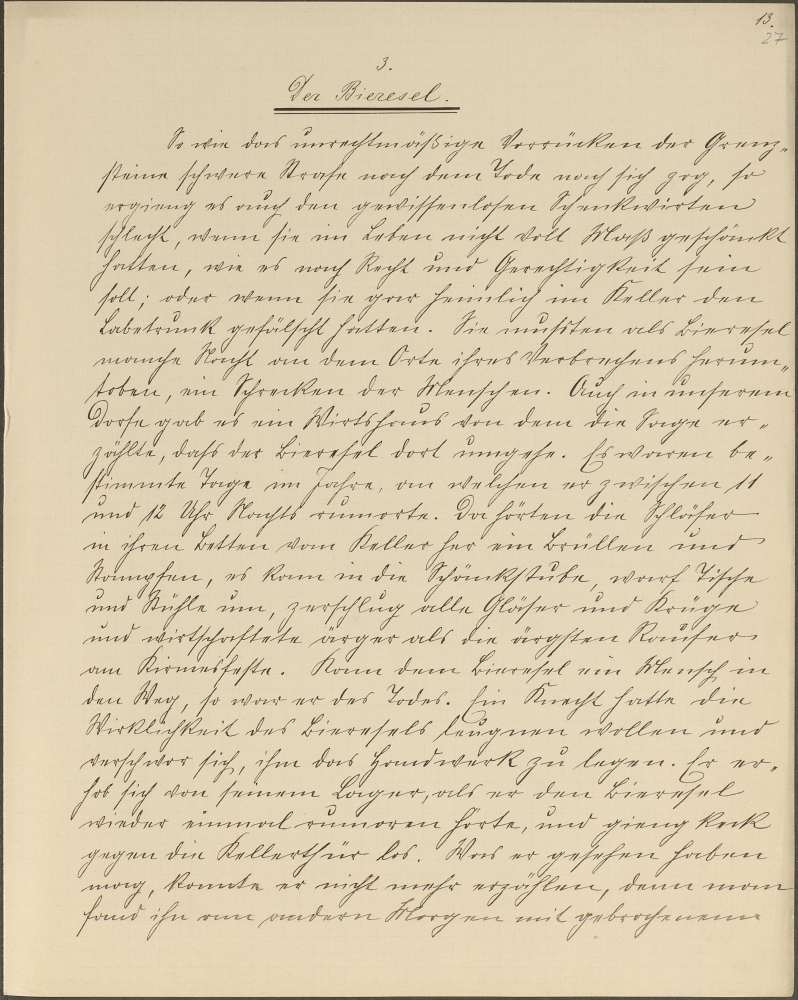 13.
27
3.
Der Bieresel.
So wie das unrechtmäßige Vorrücken der Grenz„
steine schwere Strafe nach dem Tode nach sich zog, so
ergieng es auch den gewissenlosen Schenkwirten
schlecht, wenn sie im Leben nicht voll Maß geschänkt
hatten, wie es nach Recht und Gerechtigkeit sein
soll; oder wenn sie gar heimlich im Keller den
Labetrunk gefälscht hatten. Sie mußten als Bieresel
manche Nacht an dem Orte ihres Verbrechens herum„
toben, ein Schrecken der Menschen. Auch in unserem
Dorfe gab es ein Wirtshaus von dem die Sage er„
zählte, dass der Bieresel dort umgehe. Es waren be„
stimmte Tage im Jahre, an welchen er zwischen 11
und 12 Uhr Nachts rumorte. Da hörten die Schläfer
in ihren Betten vom Keller her ein Brüllen und
Stampfen, es kam in die Schänkstube, warf Tische
und Stühle um, zerschlug alle Gläser und Krüge
und wirtschaftete ärger als die ärgsten Raufer
am Kirmesfeste. Kam dem Bieresel ein Mensch in
den Weg, so war er des Todes. Ein Knecht hatte die
Wirklichkeit des Bieresels leugnen wollen und
verschwor sich, ihm das Handwerk zu legen. Er er„
hob sich von seinem Lager, als er den Bieresel
wieder einmal rumoren hörte, und gieng keck
gegen die Kellerthür los. Was er gesehen haben
mag, konnte er nicht mehr erzählen, denn man
fand ihn am andern Morgen mit gebrochenem